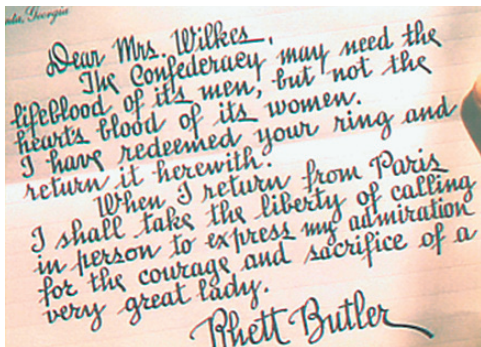 Georgia
Dear Mrs. Wilkes,
The Confederacy may need the
lifeblood of it's men, but not the
heart's blood of its women.
I have redeemed your ring and
return it herewith.
When I return from Paris
I shall take the liberty of calling
in person to express my admiration
for the courage and sacrifice of a
very great lady.
Rhett Butler